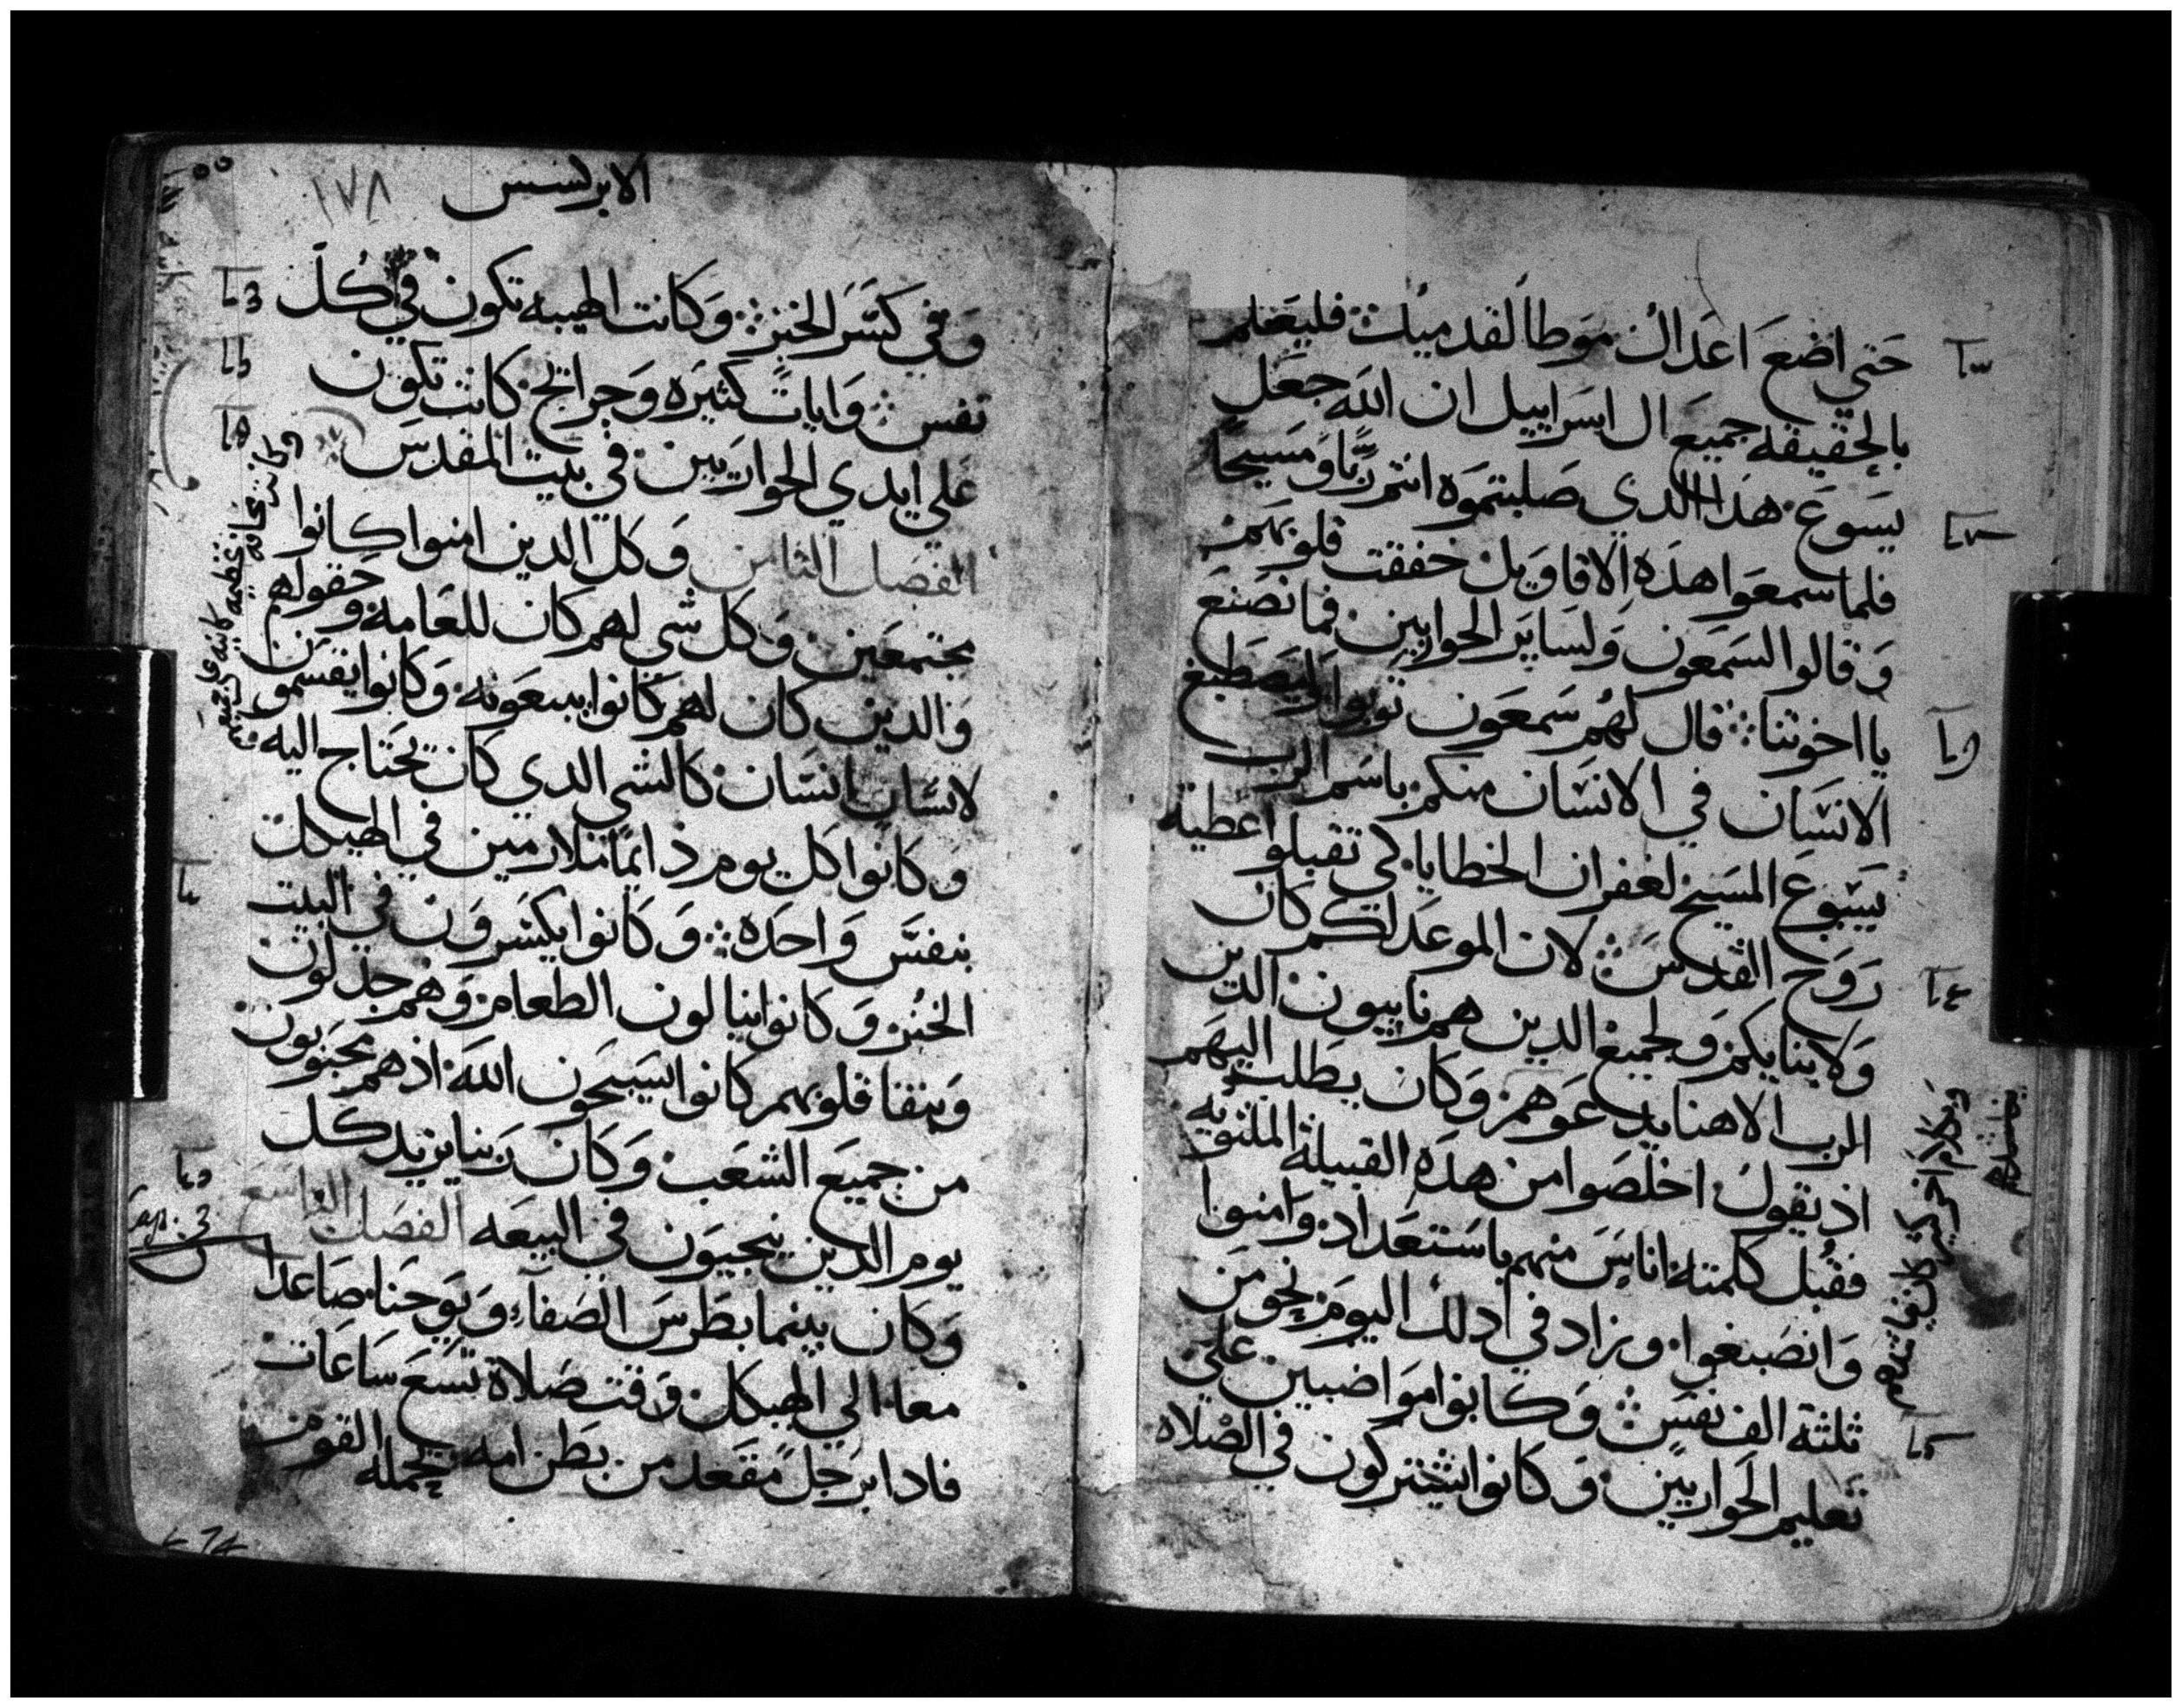 حتي اضع اعداك موطا لقدميك فليعلم
بالحقيقه جميع ال اسراييل ان الله جعل
يسوع هذا الدي صلبتموه انتم ربا ومسيحا
فلما سمعوا هذه الاقاويل خفقت قلوبهم
وقالوا لسمعون ولساير الحواريين فما نصنع
يا اخوتنا قال لهم سمعون توبوا وليصطبغ
الانسان في الانسان منكم باسم الرب
يسوع المسيح لغفران الخطايا كي تقبلوا عطية
روح القدس لان الموعد لكم كان
ولابنايكم ولجميع الدين هم نايبون الدين
الرب الاهنا يدعوهم وكان يطلب اليهم
اذ يقول اخلصوا من هذه القبيلة الملتويه
فقبل كلمته اناس منهم باستعداد وامنوا
وانصبغوا وزاد في ادلك اليوم نحو من
ثلثة الف نفس وكانوا مواضبين علي
تعليم الحواريين وكانوا يشتركون في الصلاه
وبكلام اخر كثير كان
الابركسس
١٧٨
وفي كسر الخبز وكانت الهيبه تكون في كل
نفس وايات كثيره وجرايح كانت تكون
علي ايدي الحواريين في بيت المقدس
الفصل الثامن وكل الدين امنوا كانوا
مجتمعين وكل شي لهم كان للعامه وحقولهم
والدين كان لهم كانوا يبيعونه وكانوا يقسمون
لانسان انسان كالشي الدي كان تحتاج اليه
وكانوا كل يوم ذايما متلازمين في الهيكل
بنفس واحده وكانوا يكسرون في البيت
الخبز وكانوا ينالون الطعام وهم جدلون
وبنقا قلوبهم كانوا يسبحون الله اذ هم محبوبون
من جميع الشعب وكان ربنا يزيد كل
يوم الدين ينجيون في البيعه الفصل التاسع
وكان بينما بطرس الصفاء ويوحنا صاعدا
معا الي الهيكل وقت صلاة تسع ساعات
فادا برجل مقعد من بطن امه يحمله القوم
cap. 3